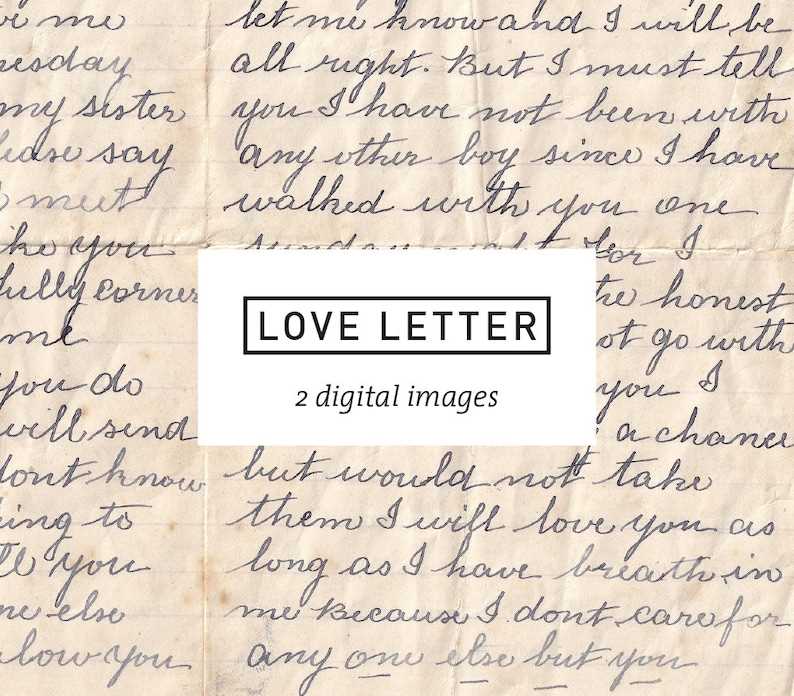 ve me
esday
my sister
lease say
meet
ike you
fully corner
me
you do
will send
dont know
ing to
ll you
ne else
low you
let me know and I will be
all right. But I must tell
you I have not been with
any other boy since I have
walked with you one
sunday night for I
the honest
not go with
you I
a chance
but would not take
them I will love you as
long as I have breath in
me Because I dont care for
any one else but you
LOVE LETTER
2 digital images